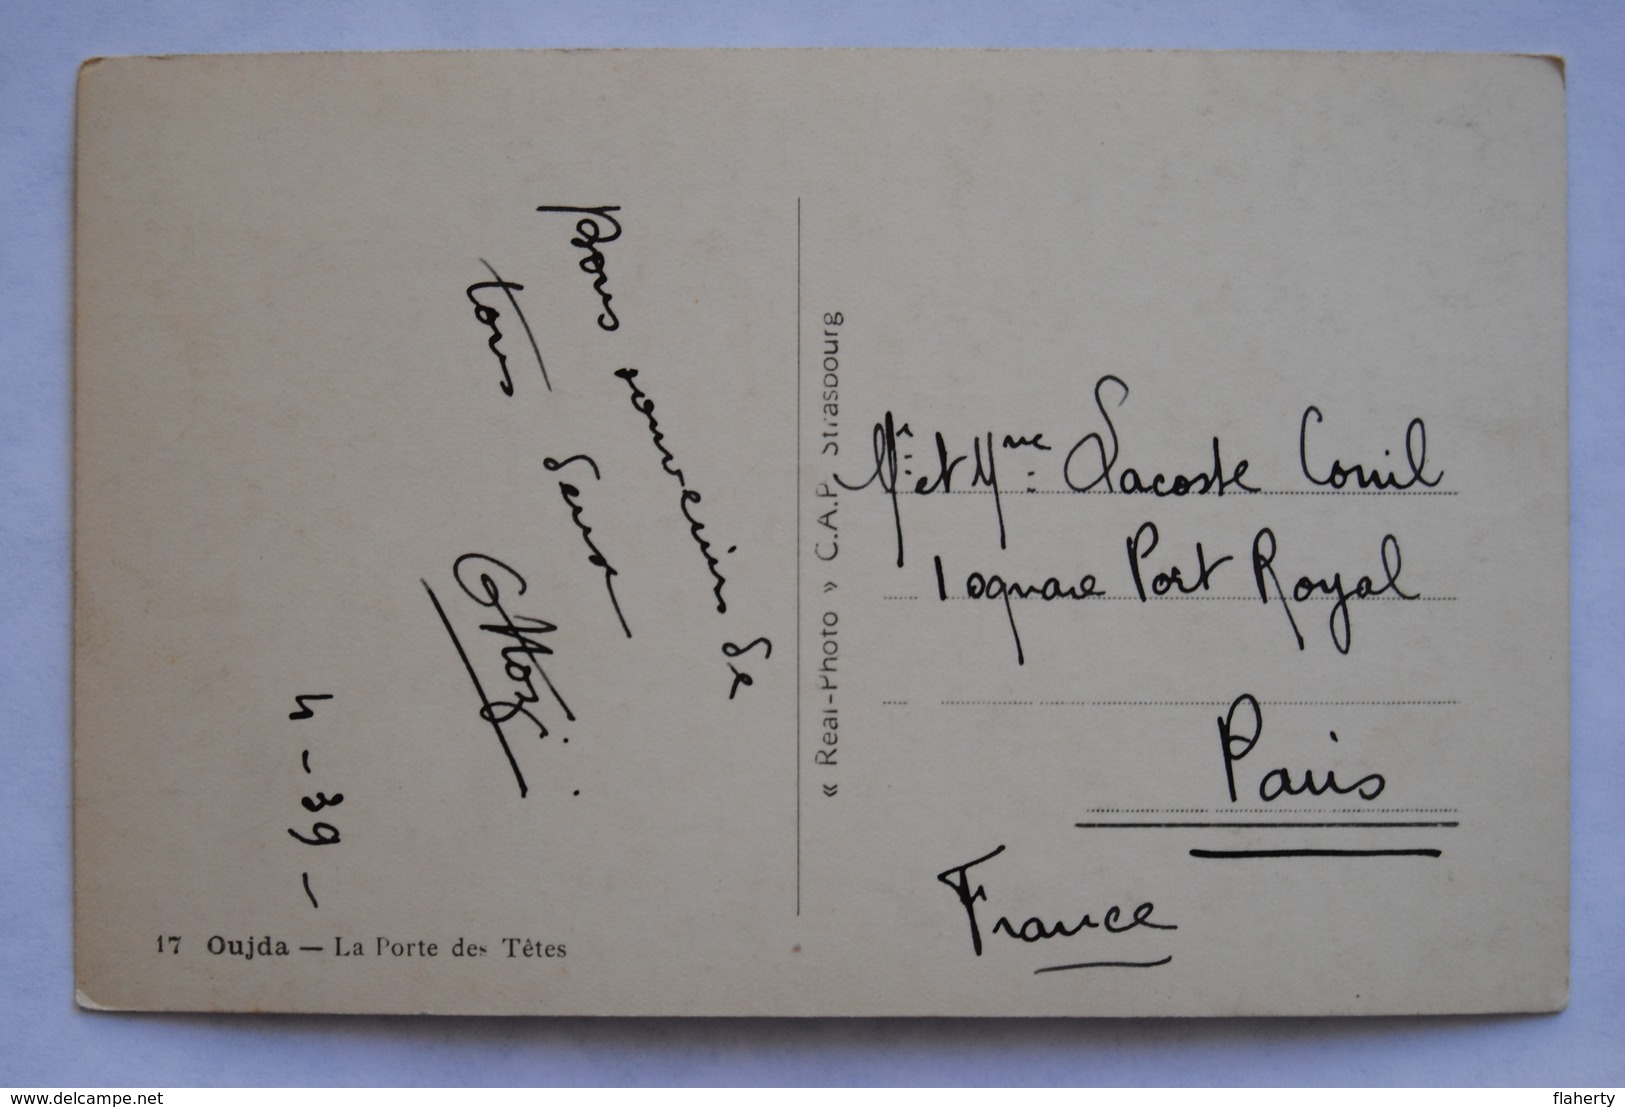 Bons souvenirs de
tous deux
4 - 39 -
17 Oujda — La Porte des Têtes
« Real-Photo » C.A.P. Strasbourg
Mr et Mme Lacoste Conil
1 square Port Royal
Paris
France
www.delcampe.net
flaherty